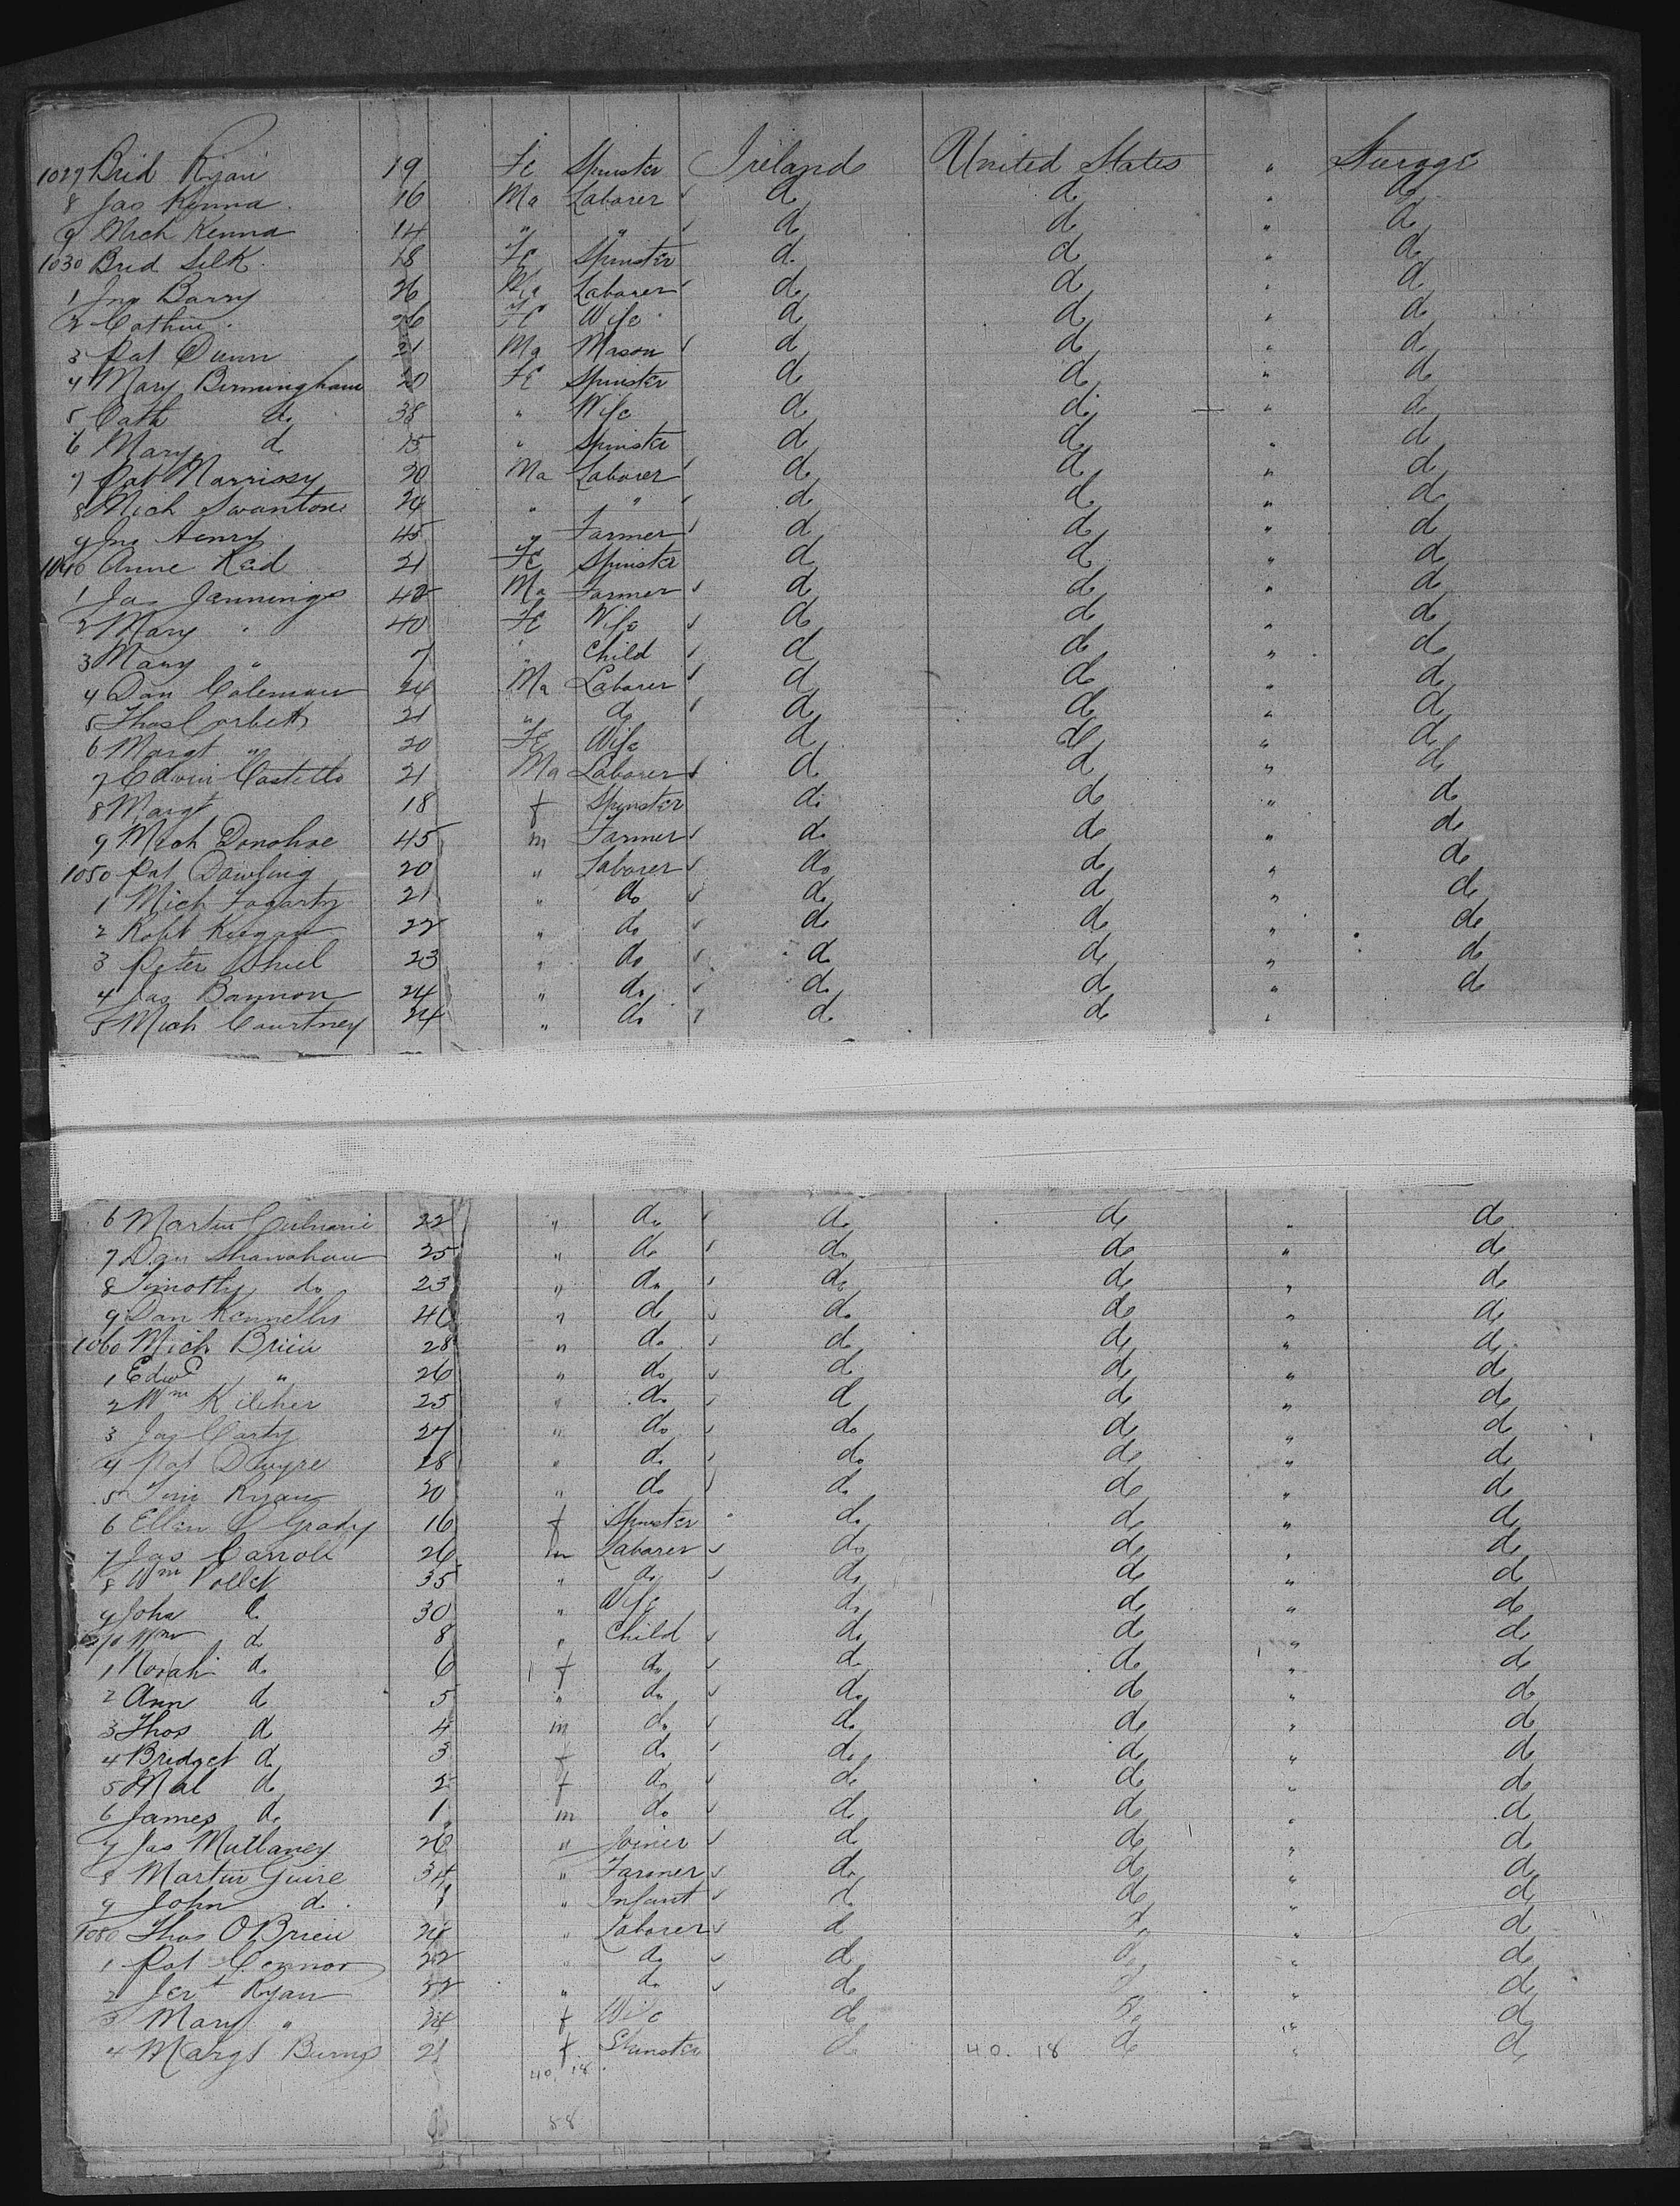 1027 Brid Ryan 19 Fe Spinster Ireland United States " Steerage
8 Jas Kenna 16 Ma Laborer do do " do
9 Mich Kenna 14 " " do do " do
1030 Brid Silk 18 Fe Spinster do do " do
1 Jno Barry 26 Ma Laborer do do " do
2 Cathne " 26 Fe Wife do do " do
3 Pat Dunn 21 Ma Mason do do " do
4 Mary Birmingham 20 Fe Spinster do do " do
5 Cath do 38 " Wife do do " do
6 Mary do 15 " Spinster do do " do
7 Pat Morrissy 30 Ma Laborer do do " do
8 Mich Swanton 24 " " do do " do
9 Jno Henry 45 " Farmer do do " do
1040 Anne Reid 21 Fe Spinster do do " do
1 Jas Jennings 42 Ma Farmer do do " do
2 Mary " 40 Fe Wife do do " do
3 Mary " 7 " Child do do " do
4 Dan Coleman 24 Ma Laborer do do " do
5 Thos Corbett 21 " do do do " do
6 Margt " 20 Fe Wife do do " do
7 Edwin Costello 21 Ma Laborer do do " do
8 Margt 18 f Spinster do do " do
9 Mich Donohoe 45 m Farmer do do " do
1050 Pat Dowling 20 " Laborer do do " do
1 Mich Fogarty 21 " do do do " do
2 Robt Keegan 22 " do do do " do
3 Peter Shiel 23 " do do do " do
4 Jas Bannon 24 " do do do " do
5 Mich Courtney 24 " do do do "
6 Martin 22 " do do do " do
7 Dan Shanahan 25 " do do do " do
8 Timothy do 23 " do do do " do
9 Dan Kennelly 40 " do do do " do
1060 Mich Brien 28 " do do do " do
1 Edwd " 26 " do do do " do
2 Wm Kilcher 25 " do do do " do
3 Jas Carty 27 " do do do " do
4 Pat Dwyre 28 " do do do " do
5 Tim Ryan 20 " do do do " do
6 Ellen O Grady 16 f Spinster do do " do
7 Jas Carroll 26 m Laborer do do " do
8 Wm 35 " do do do " do
9 John do 30 " Wife do do " do
1070 Wm do 8 " Child do do " do
1 Norah do 6 f do do do " do
2 Ann do 5 " do do do " do
3 Thos do 4 m do do do " do
4 Bridget do 3 f do do do " do
5 Mal do 2 f do do do " do
6 James do 1 m do do do " do
7 Jas Mullaney 26 " Joiner do do " do
8 Martin Guire 34 " Farmer do do " do
9 John do 1 " Infant do do " do
1080 Thos O'Brien 24 " Laborer do do " do
1 Pat Connor 22 " do do do " do
2 Jert Ryan 32 " do do do " do
3 Mary " 24 f Wife do do " do
4 Margt Burns 21 f Spinster do 40. 18 do " do
40. 18.
58